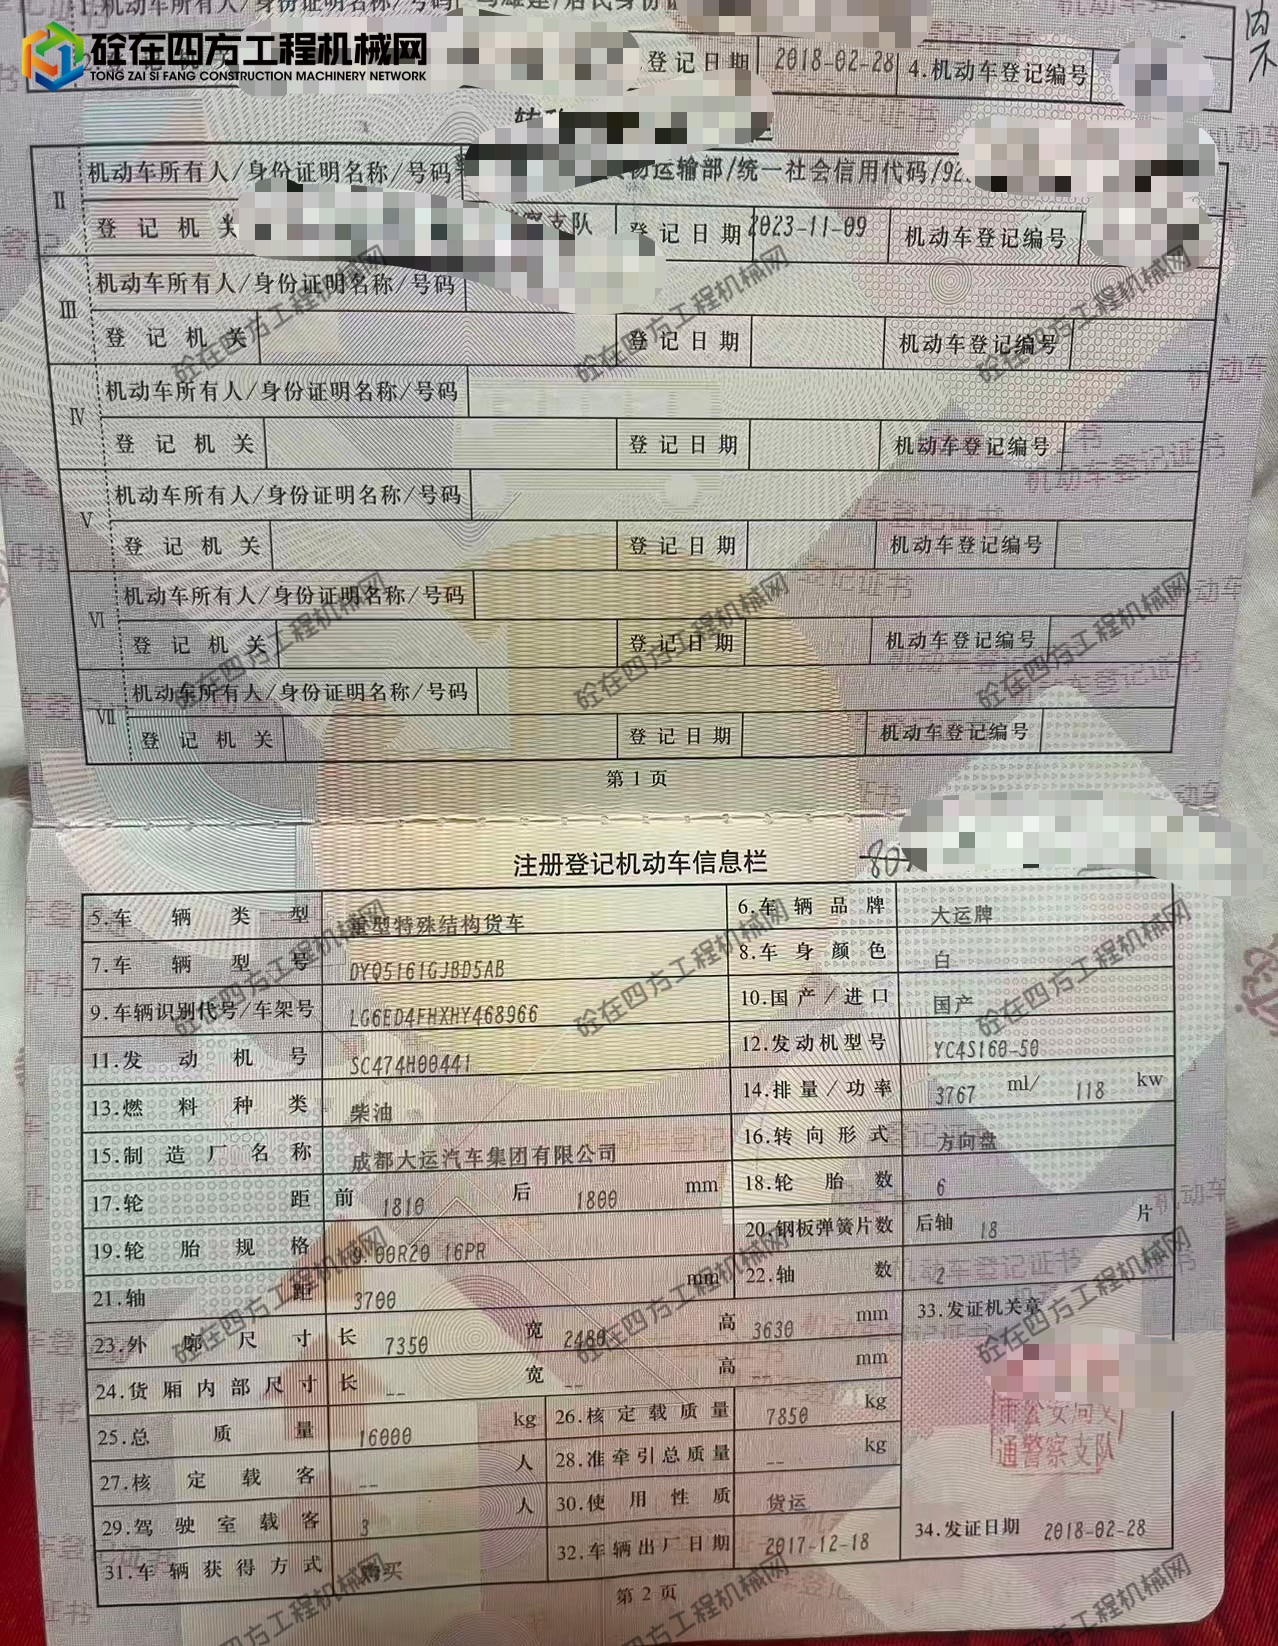 1.机动车所有人/身份证明名称/号码
砼在四方工程机械网
TONG ZAI SI FANG CONSTRUCTION MACHINERY NETWORK
登记日期 2018-02-28 4.机动车登记编号
II 机动车所有人/身份证明名称/号码 物运输部/统一社会信用代码/92
登记机关 察支队 登记日期 2023-11-09 机动车登记编号
III 机动车所有人/身份证明名称/号码
登记机关 登记日期 机动车登记编号
IV 机动车所有人/身份证明名称/号码
登记机关 登记日期 机动车登记编号
V 机动车所有人/身份证明名称/号码
登记机关 登记日期 机动车登记编号
VI 机动车所有人/身份证明名称/号码
登记机关 登记日期 机动车登记编号
VII 机动车所有人/身份证明名称/号码
登记机关 登记日期 机动车登记编号
第 1 页
注册登记机动车信息栏
5.车辆类型 重型特殊结构货车 6.车辆品牌 大运牌
7.车辆型号 DYQ5161GJBD5AB 8.车身颜色 白
9.车辆识别代号/车架号 LG6ED4FHXHY468966 10.国产/进口 国产
11.发动机号 SC474H00441 12.发动机型号 YC4S160-50
13.燃料种类 柴油 14.排量/功率 3767 ml/ 118 kw
15.制造厂名称 成都大运汽车集团有限公司 16.转向形式 方向盘
17.轮距 前 1810 后 1800 mm 18.轮胎数 6
19.轮胎规格 9.00R20 16PR 20.钢板弹簧片数 后轴 18 片
21.轴距 3700 mm 22.轴数 2
23.外廓尺寸 长 7350 宽 2480 高 3630 mm 33.发证机关章
24.货厢内部尺寸 长 -- 宽 -- 高 -- mm
25.总质量 16000 kg 26.核定载质量 7850 kg
市公安局交
通警察支队
27.核定载客 -- 人 28.准牵引总质量 -- kg
29.驾驶室载客 3 人 30.使用性质 货运
31.车辆获得方式 购买 32.车辆出厂日期 2017-12-18 34.发证日期 2018-02-28
第 2 页